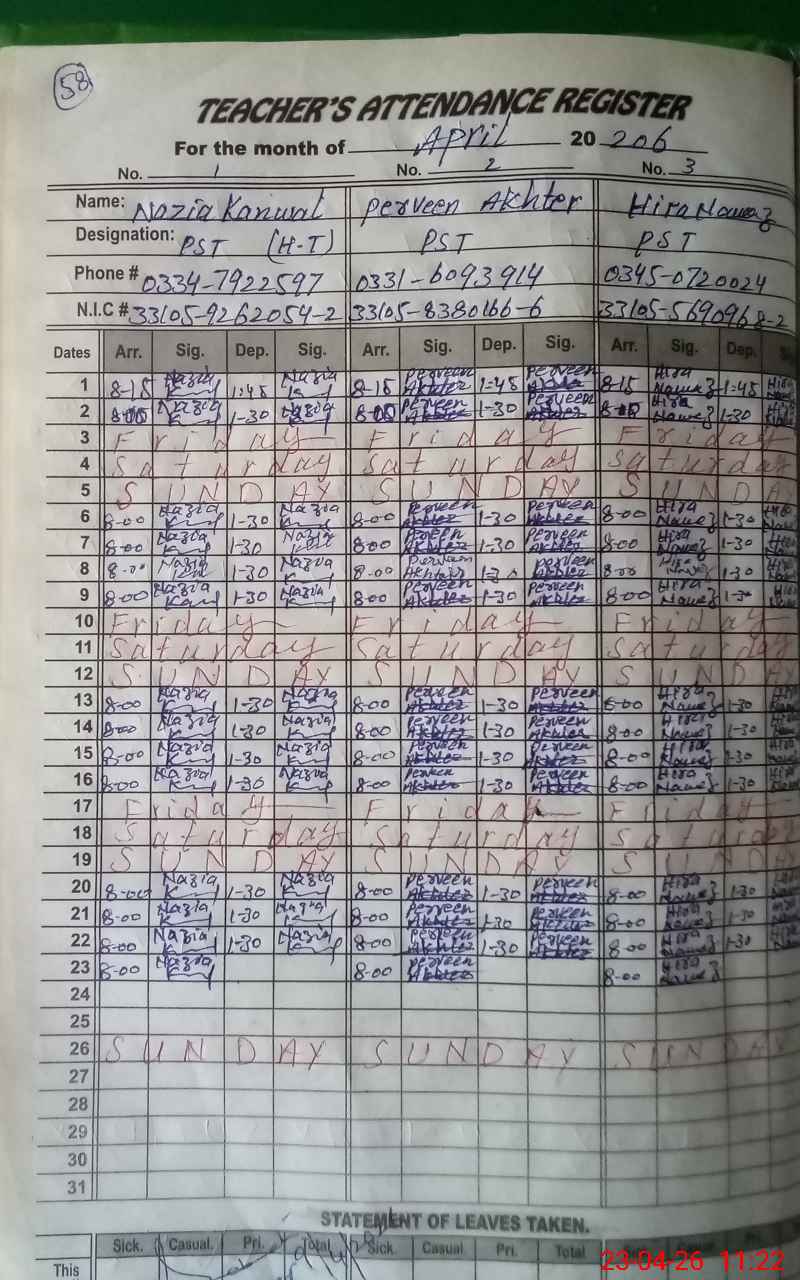 58
TEACHER'S ATTENDANCE REGISTER
For the month of April 20 206
No. 1 No. 2 No. 3
Name: Nazia Kanwal Perveen Akhter Hira Nawaz
Designation: PST (H-T) PST PST
Phone # 0334-7922597 0331-6093914 0345-0720024
N.I.C # 33105-9262054-2 33105-8380166-6 33105-5690968-2
Dates Arr. Sig. Dep. Sig. Arr. Sig. Dep. Sig. Arr. Sig. Dep.
1 8-15 Nazia 1:45 Nazia 8-15 Perveen Akhter 1:45 Perveen Akhter 8-15 Hira Nawaz 1-45 Hira
2 8-00 Nazia 1-30 Nazia 8-00 Perveen Akhter 1-30 Perveen Akhter 8-00 Hira Nawaz 1-30 Hira
3 Friday Friday Friday
4 Saturday Saturday Saturday
5 SUNDAY SUNDAY SUNDA
6 8-00 Nazia 1-30 Nazia 8-00 Perveen Akhter 1-30 Perveen Akhter 8-00 Hira Nawaz 1-30 Hira
7 8-00 Nazia 1-30 Nazia 8-00 Perveen Akhter 1-30 Perveen Akhter 8-00 Hira Nawaz 1-30 Hira
8 8-00 Nazia 1-30 Nazia 8-00 Perveen Akhter 1-30 Perveen Akhter 8-00 Hira 1-30 Hira
9 8-00 Nazia 1-30 Nazia 8-00 Perveen Akhter 1-30 Perveen Akhter 8-00 Hira Nawaz 1-30 Hira
10 Friday Friday Friday
11 Saturday Saturday Saturday
12 SUNDAY SUNDAY SUNDA
13 8-00 Nazia 1-30 Nazia 8-00 Perveen Akhter 1-30 Perveen Akhter 8-00 Hira Nawaz 1-30 Hira
14 8-00 Nazia 1-30 Nazia 8-00 Perveen Akhter 1-30 Perveen Akhter 8-00 Hira Nawaz 1-30 Hira
15 8-00 Nazia 1-30 Nazia 8-00 Perveen Akhter 1-30 Perveen Akhter 8-00 Hira Nawaz 1-30 Hira
16 8-00 Nazia 1-30 Nazia 8-00 Perveen Akhter 1-30 Perveen Akhter 8-00 Hira Nawaz 1-30 Hira
17 Friday Friday Friday
18 Saturday Saturday Saturday
19 SUNDAY SUNDAY SUNDA
20 8-00 Nazia 1-30 Nazia 8-00 Perveen Akhter 1-30 Perveen Akhter 8-00 Hira Nawaz 1-30 Hira
21 8-00 Nazia 1-30 Nazia 8-00 Perveen Akhter 1-30 Perveen Akhter 8-00 Hira Nawaz 1-30 Hira
22 8-00 Nazia 1-30 Nazia 8-00 Perveen Akhter 1-30 Perveen Akhter 8-00 Hira Nawaz 1-30 Hira
23 8-00 Nazia 8-00 Perveen Akhter 8-00 Hira Nawaz
24
25
26 SUNDAY SUNDAY SUNDA
27
28
29
30
31
STATEMENT OF LEAVES TAKEN.
Sick. Casual. Pri. Total Sick. Casual Pri. Total
This
23-04-26 11:22